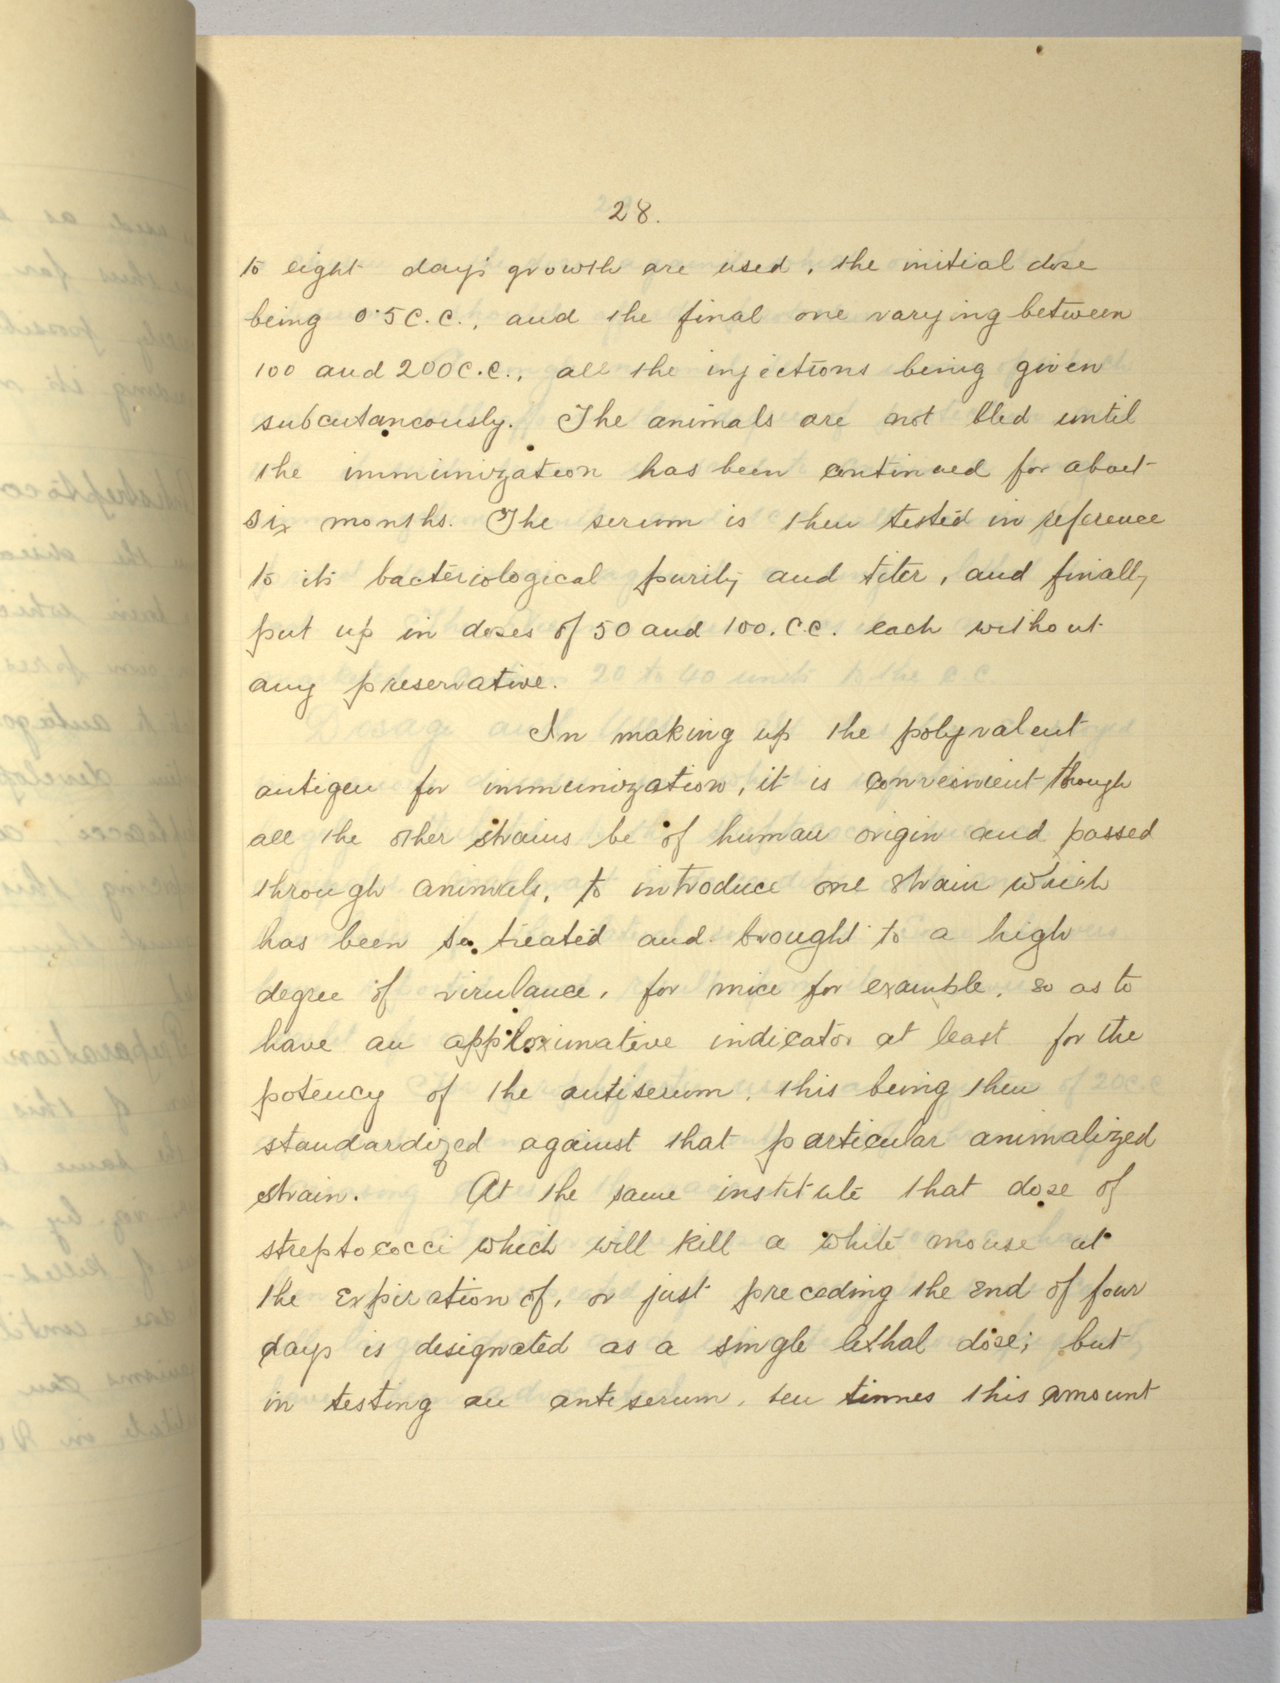 28.
to eight day's growth are used, the initial dose
being 0.5 C.C., and the final one varying between
100 and 200 C.C., all the injections being given
subcutaneously. The animals are not bled until
the immunization has been continued for about
six months. The serum is then tested in reference
to its bacteriological purity and titer, and finally
put up in doses of 50 and 100. C.C. each without
any preservative.
In making up the polyvalent
antigen for immunization, it is convenient though
all the other strains be of human origin and passed
through animals, to introduce one strain which
has been so treated and brought to a high
degree of virulance, for mice for example, so as to
have an approximative indicator at least for the
potency of the antiserum, this being then
standardized against that particular animalized
strain. At the same institute that dose of
streptococci which will kill a white mouse at
the expiration of, or just preceding the end of four
days is designated as a single lethal dose; but
in testing an antiserum, ten times this amount